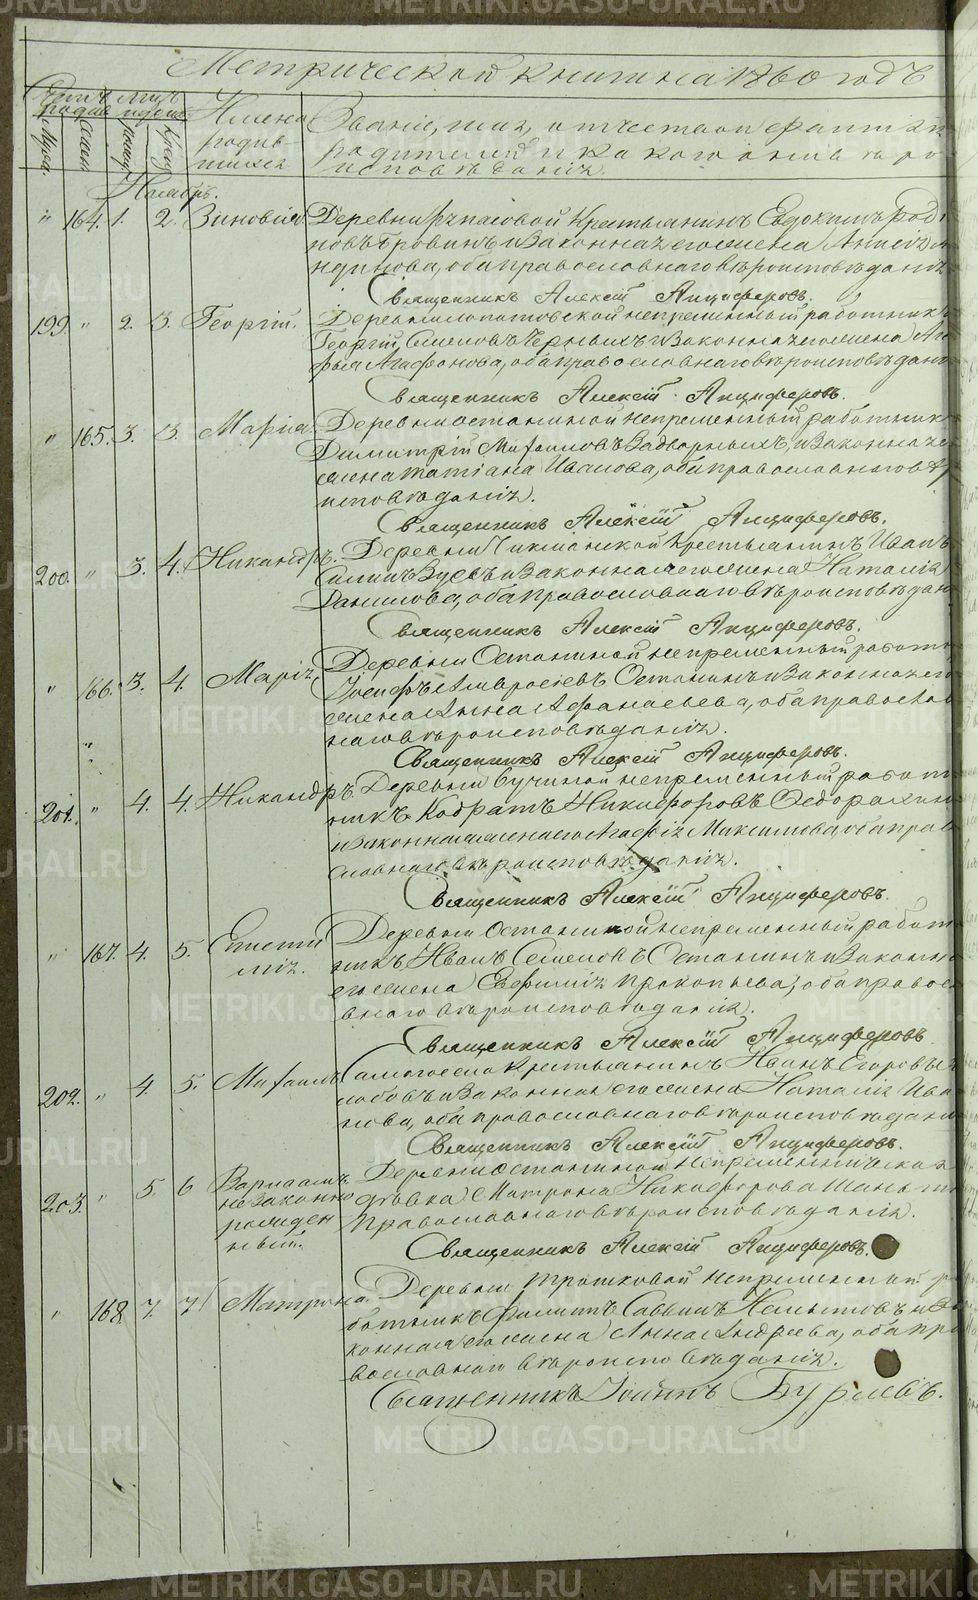 Метрической книги на 1860 годъ
Счетъ родив. Мѣсяцъ и день
Имена родив-шихся
Званіе, имя, отчество и фамилія
родителей и какого они вѣро
исповѣданія
Ноябрь.
" 164. 1. 2. Зиновія Деревни Крестьянинъ Евдокимъ Роді
новъ и законная его жена
оба православнаго вѣроисповѣданія
Священникъ Алексій Анциферовъ.
199. " 2. 3. Георгій. Деревни Лопатовской непременный работникъ
Георгій Семеновъ Черныхъ и законная его жена Ага
фья Агафонова, оба православнаго вѣроисповѣдані
Священникъ Алексій Анциферовъ.
" 165. 3. 3. Марѳа Деревни Останиной непременный работник
Димитрій Михаиловъ Задворныхъ, и законная его
жена Татіана Иванова, оба православнаго вѣр
исповѣданія.
Священникъ Алексій Анциферовъ.
200. " 3. 4. Никандръ. Деревни Крестьянинъ Иванъ
Зуевъ и законная его жена Наталія
Данилова, оба православнаго вѣроисповѣдан
Священникъ Алексій Анциферовъ.
" 166. 3. 4. Марія Деревни Останиной непременный работн
Іосифъ Амвросіевъ Останинъ и законная его
жена Анна Афанасьева, оба правослов
наго вѣроисповѣданія.
"
Священникъ Алексій Анциферовъ.
201. " 4. 4. Никандръ. Деревни Бучиной непременный работ
никъ Кодратъ Никифоровъ Федорахин
и законная жена его Агафія Максимова, оба прав
славнаго вѣроисповѣданія.
Священникъ Алексій Анциферовъ.
" 167. 4. 5. Еписти
мія. Деревни Останиной непременный работ
никъ Иванъ Семеновъ Останинъ и законна
его жена Евфимія Прокопьева, оба правос
внаго вѣроисповѣданія.
Священникъ Алексій Анциферовъ
202. " 4. 5. Михаилъ Крестьянинъ Иванъ Егоровъ
и законная его жена Наталія Ива
нова, оба православнаго вѣроисповѣдані
Священникъ Алексій Анциферовъ.
203. " 5 6 Варлаамъ
незаконно
рожден
ный. Деревни Останиной непременническая
дѣвка Матрона Никифорова
Православнаго вѣроисповѣданія.
Священникъ Алексій Анциферовъ.
" 168 7. 7 Матрона. Деревни Трошковой непременный ра
ботникъ Филиппъ Саввинъ и за
конная его жена Анна Андреева, оба пра
вославнаго вѣроисповѣданія.
Священникъ Іоаннъ Бурлевъ.
METRIKI.GASO-URAL.RU